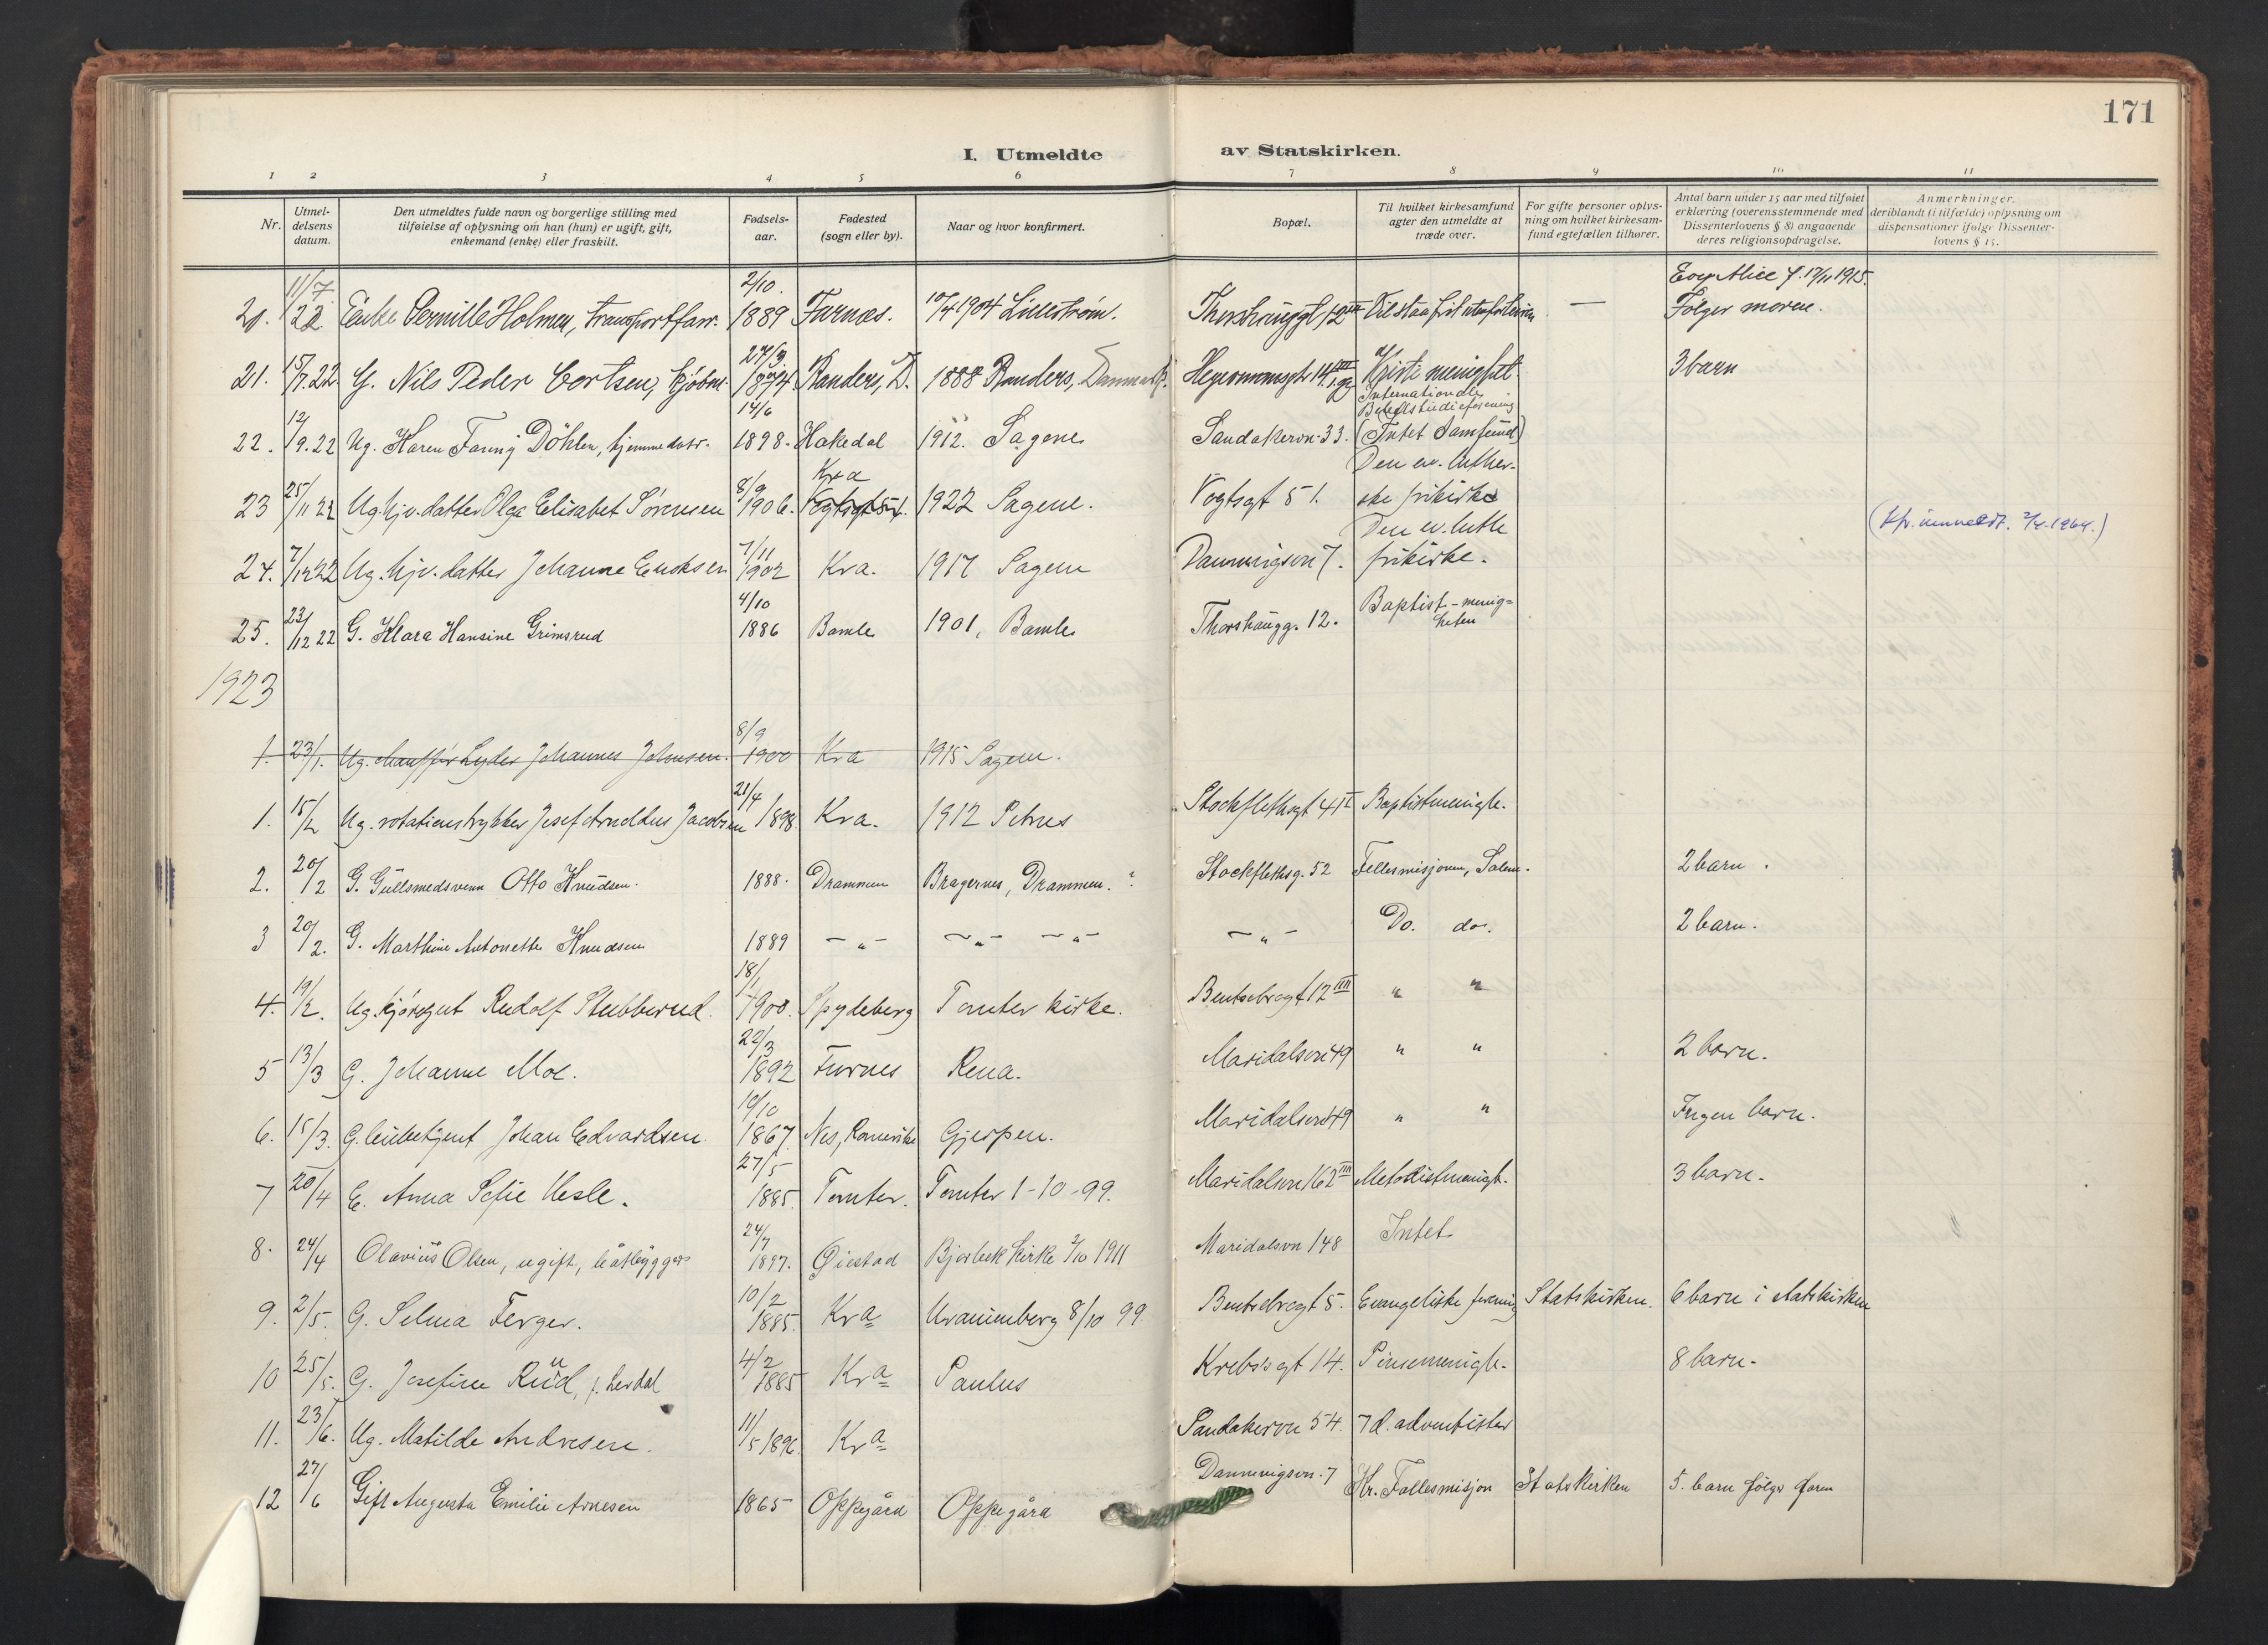 171
I. Utmeldte av Statskirken.
1 2 3 4 5 6 7 8 9 10 11
Nr. Utmel-delsens datum. Den utmeldtes fulde navn og borgerlige stilling med tilføielse af oplysning om han (hun) er ugift, gift, enkemand (enke) eller fraskilt. Fødsels-aar. Fødested (sogn eller by). Naar og hvor konfirmert. Bopæl. Til hvilket kirkesamfund agter den utmeldte at træde over. For gifte personer oplys-ning om hvilket kirkesam-fund egtefællen tilhører. Antal barn under 15 aar med tilføiet erklæring (overensstemmende med Dissenterlovens § 8) angaaende deres religionsopdragelse. Anmerkninger, deriblandt (i tilfælde) oplysning om dispensationer ifølge Dissenter-lovens § 15.
20. 11/7 22 Enke Pernille Holmen, 2/10. 1889 Furnes. 10/4 1904 Lillestrøm. Thorshauggt 12 Vil staa frit utenfor — Alice f. 17/11 1915. Følger moren.
21. 15/7.22. G. Nils Peder 27/3 1874. Randers, D. 1888 Randers, Danmark. Kristi menighet. 3 barn
22. 12/9.22 Ug. Karen Fanny Döhlen, hjemmedatr. 14/6 1898. Hakedal 1912. Sagene Sandakervn. 33. Internationale Bibelstudieforening (Intet Samfund)
23 25/11 22 Ug. hjv. datter Olga Elisabet Sørensen 8/9 1906. Kra Vogtsgt 51. 1922 Sagene. Vogtsgt 51. Den ev. luther-ske frikirke (
2/4-1964.)
24. 7/12 22 Ug. hjv. datter Johanne Enoksen 7/11 1902 Kra. 1917 Sagene Dannevigsvn 7. Den ev. luth frikirke.
25. 23/12 22 G. Klara Hansine Grimsrud 4/10 1886 Bamle 1901, Bamle Thorshaugg. 12. Baptist-menig=heten
1923
1. 23/1. Ug. chauffør Lyder Johannes Johnsen. 8/9 1900 Kra 1915 Sagene.
1. 15/2 Ug. rotationstrykker Josef Arneldus Jacobsen 21/4 1898. Kra. 1912 Petrus Stockflethsgt 41 Baptistmenigh.
2. 20/2 G. Gullsmedsvenn Otto Knudsen. 1888. Drammen Bragernes, Drammen. ? Stockflethsg. 52 Fellesmisjonen, Salem. 2 barn.
3 20/2. G. Marthine Antonette Knudsen 1889 — " — — " — — " — — " — Do. do. 2 barn.
4. 19/2. Ug. kjøregut Rudolf Stubberud. 18/1 1900. Spydeberg Tomter kirke. Bentsebrogt 12 IIII " "
5 13/3 G. Johanne Moe. 22/3 1892 Furnes Rena. Maridalsvn 49 " " 2 barn.
6. 15/3. G. Johan Edvardsen. 19/10 1867. Nes, Romerike Gjerpen. Maridalsvn 49 " " Ingen barn.
7 20/4 E. Anna Sofie Hesle. 27/5 1885. Tomter. Tomter 1-10-99. Maridalsvn 162 IIII Metodistmenigh. 3 barn.
8. 24/4 Olavius Olsen, ugift, båtbygger 24/7 1897. Øiestad Bjorbek kirke 2/10 1911 Maridalsvn 148 Intet
9. 2/5. G. Selma Ferger. 10/2 1885. Kra Uranienberg 8/10 99. Bentsebrogt 5. Evangeliske forening Statskirken. 6 barn i statskirken
10 25/5. G. Josefine Ruud, f. Lerdal 4/2 1885 Kra Paulus Krebs's gt 14. Pinsemenigh. 8 barn.
11. 23/6. Ug. Matilde Andresen. 11/5 1896. Kra Sandakervn 54. 7 d. adventister
12 27/6 Gift Augusta Emilie Arnesen 1865 Oppegård Oppegård Dannevigsvn. 7 Kr. Fellesmisjon Statskirken 5. barn følger faren